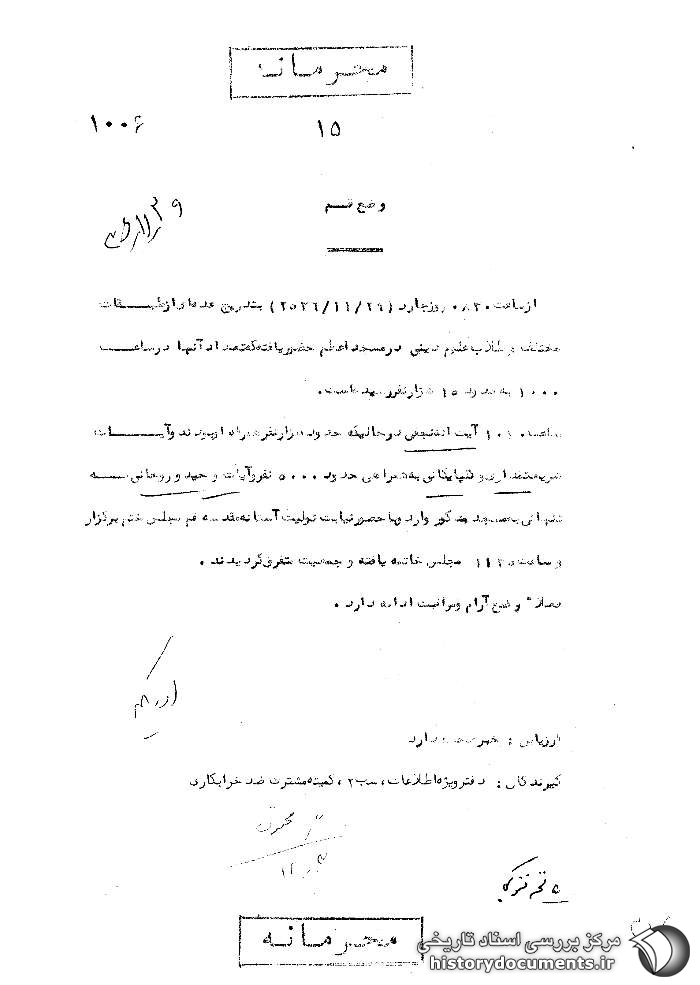 محرمانه
۱۰۰۶
۱۵
وضع قم
از ساعت ۰۸۳۰ روز جاری (۲۵۳۶/۱۱/۲۹) بتدریج عده‌ای از طبقات
مختلف و طلاب علوم دینی در مسجد اعظم حضور یافته که تعداد آنها در ساعت
۱۰۰۰ به حدود ۱۵ هزار نفر رسیده است.
ساعت ۱۰۱۰ آیت اله نجفی در حالیکه حدود هزار نفر همراه او بودند و آیات
شریعتمداری و گلپایگانی به همراهی حدود ۵۰۰۰ نفر و آیات وحید و روحانی به
تنهائی به مسجد مذکور وارد و با حضور نیابت تولیت آستانه مقدسه قم مجلس ختم برگزار
و ساعت ۱۱۲۵ مجلس خاتمه یافته و جمعیت متفرق گردیدند .
فعلا" وضع آرام و مراقبت ادامه دارد .
ارزیابی : خبر صحت دارد
گیرندگان : دفتر ویژه اطلاعات، سب۲ ، کمیته مشترک ضد خرابکاری
محرمانه
مرکز بررسی اسناد تاریخی
historydocuments.ir